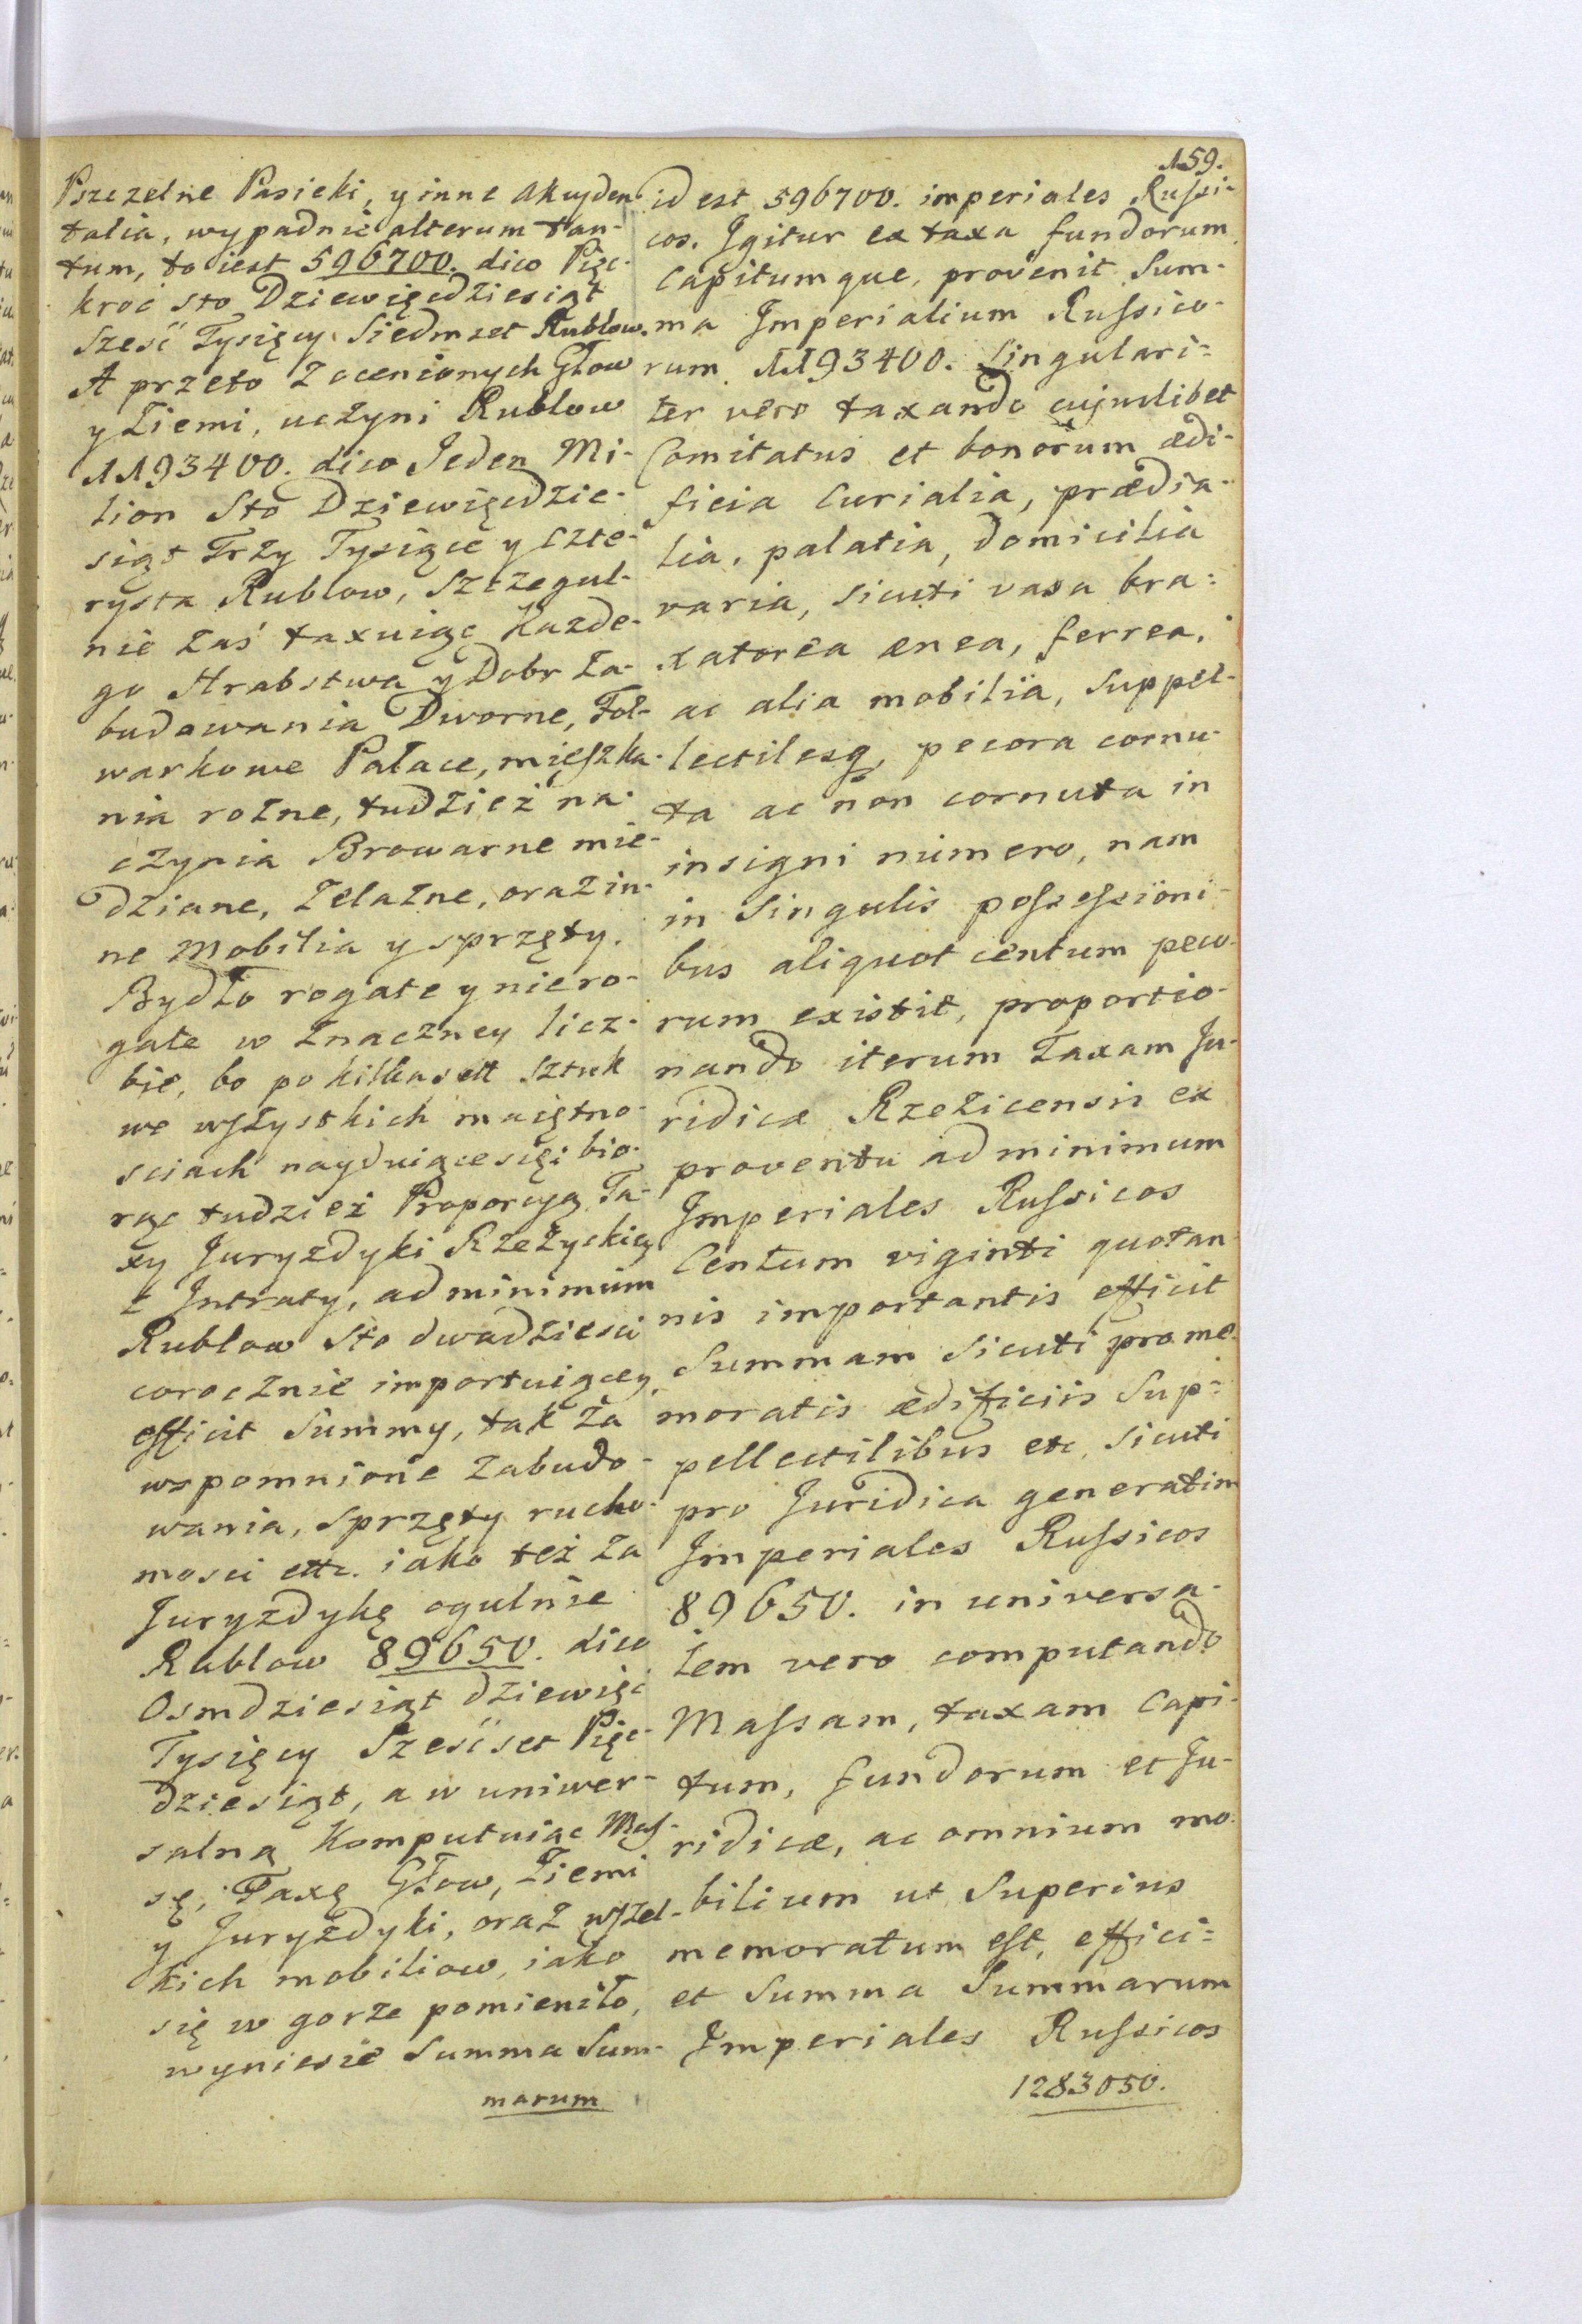 159.
Pszczelne Pasieki, y inne akcyden-
talia, wypadnie alterum tan-
tum, to iest 596700. dico Pięc-
kroć sto Dziewięcdziesiąt
Sześć Tysięcy Siedmset Rublow.
A przeto z ocenionych Głow
y Ziemi, uczyni Rublow
1193400. dico Jeden Mi-
lion Sto Dziewięcdzie-
siąt Trzy Tysiące y czte-
rysta Rublow, Szczegul-
nie zaś taxuiąc Kazde-
go Hrabstwa y Dobr Za-
budowania Dworne, Fol-
warkowe Pałace, mięszka-
nia rożne, tudzież na-
czynia Browarne mie-
dziane, żelazne, oraz in-
ne Mobilia y sprzęty.
Bydło rogate y niero-
gate w znaczney licz-
bie, bo po kilkasett sztuk
we wszystkich maiętno-
sciach nayduiące się; bio-
rąc tudzież Proporcyą Ta-
xy Juryzdyki Rzeżyckiey
z Intraty, ad minimum
Rublow Sto dwadziescia
corocznie importuiącey,
efficit Summy, tak za
wspomnione Zabudo-
wania, sprzęty rucho-
mosci ettc. iako też za
Juryzdykę ogulnie
Rublow 89650. dico
Osmdziesiąt dziewięć
Tysięcy Sześćset Pięc-
dziesiąt, a w uniwer-
salną Komputuiąc Mas-
sę, Taxę Głow, Ziemi
y Juryzdyki, oraz wszel-
kich mobiliow, iako
się w gorze pomieniło,
wyniesie Summa Sum-
marum
id est 596700. imperiales Russi-
cos. Igitur ex taxa fundorum
Capitumque, provenit Sum-
ma Imperialium Russico-
rum 1193400. Singulari-
ter vero taxando cujuslibet
Comitatus et bonorum ædi-
ficia Curialia, prædia-
lia, palatia, domicilia
varia, sicuti vasa bra-
xatorea ænea, ferrea,
ac alia mobilia, suppel-
lectilesq, pecora cornu-
ta ac non cornuta in
insigni numero, nam
in singulis possessioni-
bus aliquot centum peco-
rum existit, proportio-
nando iterum Taxam Ju-
ridicæ Rzezicensis ex
proventu ad minimum
Imperiales Russicos
Centum viginti quotan-
nis importantis efficit
Summam sicuti pro me-
moratis ædificiis Sup-
pellectilibus etc, sicuti
pro Juridica generatim
Imperiales Russicos
89650. in universa-
lem vero computando
Massam, taxam Capi-
tum, fundorum et Ju-
ridicæ, ac omnium mo-
bilium ut Superius
memoratum est, effici-
et Summa Summarum
Imperiales Russicos
1283050.